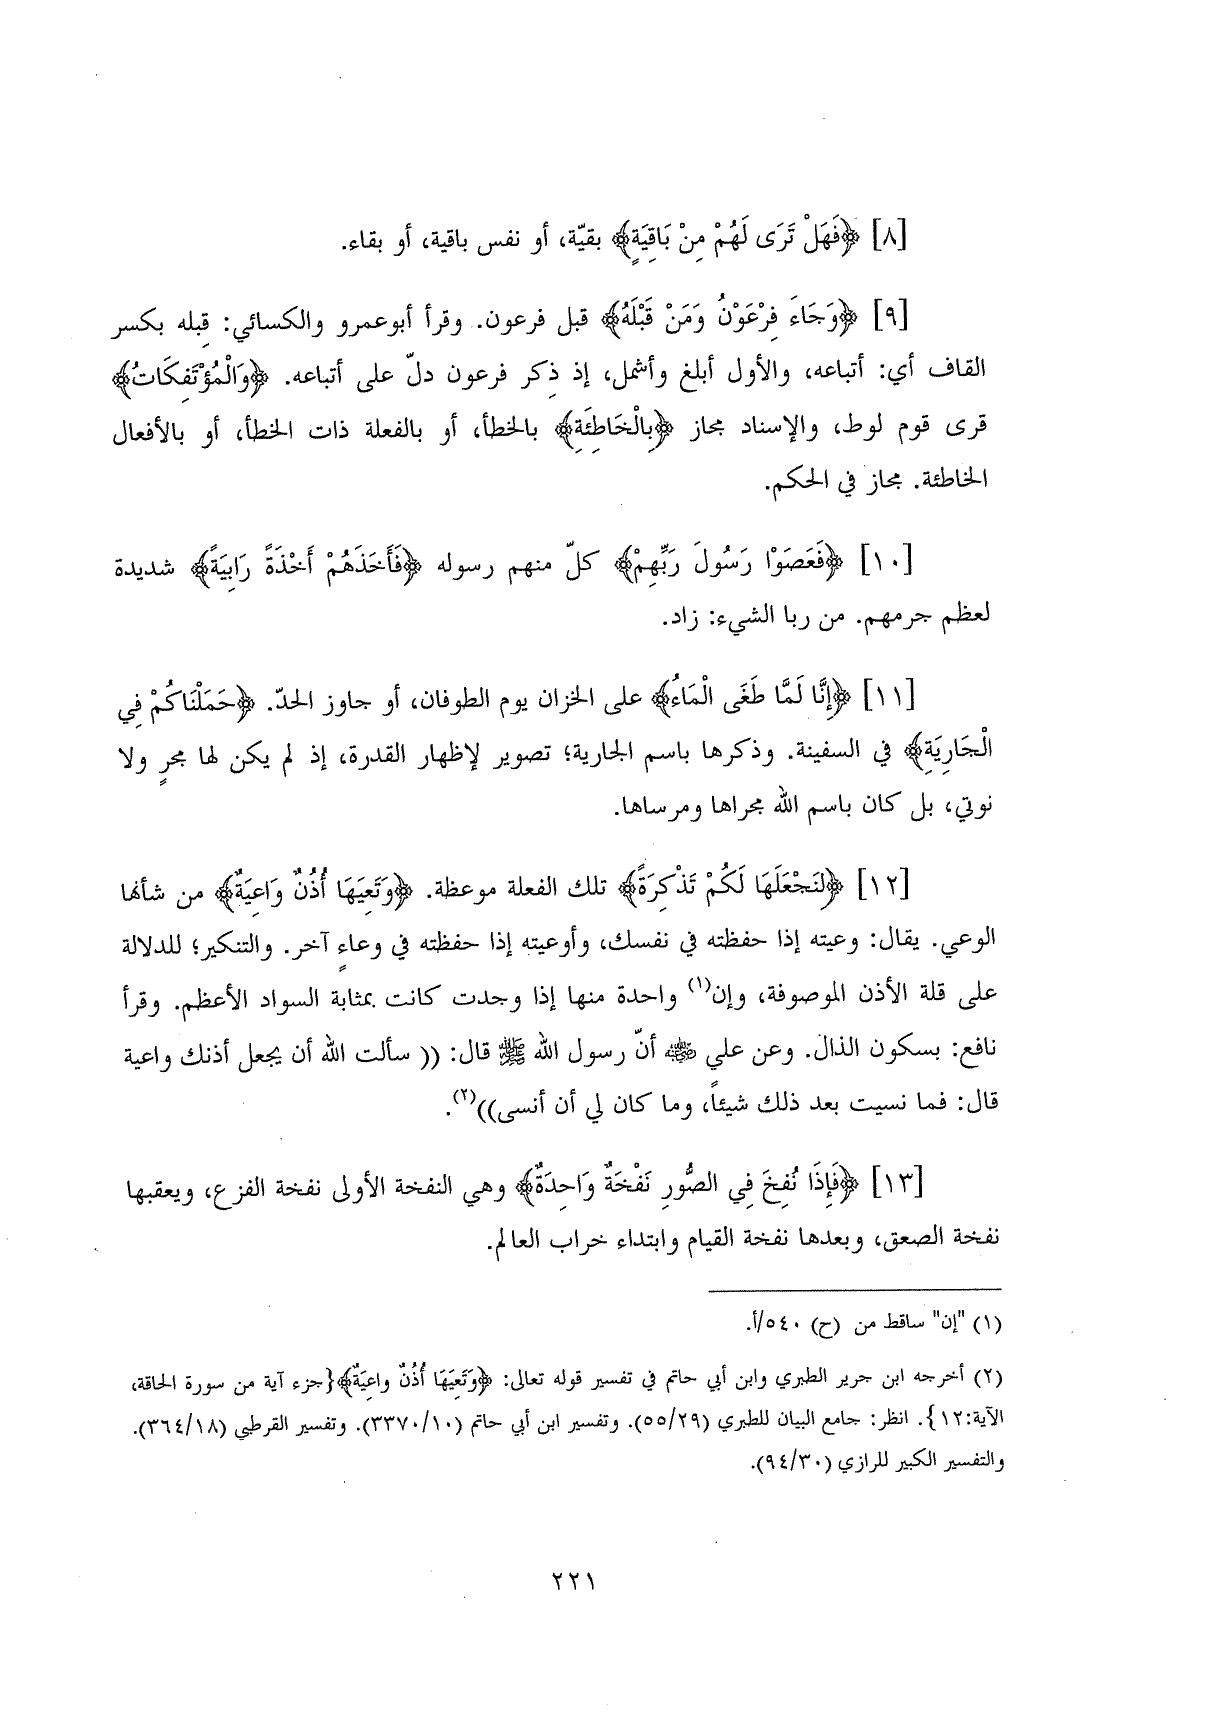 [٨] ﴿فَهَلْ تَرَى لَهُمْ مِنْ بَاقِيَةٍ﴾ بقيّة، أو نفس باقية، أو بقاء.
[٩] ﴿وَجَاءَ فِرْعَوْنُ وَمَنْ قَبْلَهُ﴾ قبل فرعون. وقرأ أبوعمرو والكسائي: قِبله بكسر
القاف أي: أتباعه، والأول أبلغ وأشمل، إذ ذِكر فرعون دلّ على أتباعه. ﴿وَالْمُؤْتَفِكَاتُ﴾
قرى قوم لوط، والإسناد مجاز ﴿بِالْخَاطِئَةِ﴾ بالخطأ، أو بالفعلة ذات الخطأ، أو بالأفعال
الخاطئة. مجاز في الحكم.
[١٠] ﴿فَعَصَوْا رَسُولَ رَبِّهِمْ﴾ كلّ منهم رسوله ﴿فَأَخَذَهُمْ أَخْذَةً رَابِيَةً﴾ شديدة
لعظم جرمهم. من ربا الشيء: زاد.
[١١] ﴿إِنَّا لَمَّا طَغَى الْمَاءُ﴾ على الخزان يوم الطوفان، أو جاوز الحدّ. ﴿حَمَلْنَاكُمْ فِي
الْجَارِيَةِ﴾ في السفينة. وذكرها باسم الجارية؛ تصوير لإظهار القدرة، إذ لم يكن لها مجرٍ ولا
نوتي، بل كان باسم الله مجراها ومرساها.
[١٢] ﴿لِنَجْعَلَهَا لَكُمْ تَذْكِرَةً﴾ تلك الفعلة موعظة. ﴿وَتَعِيَهَا أُذُنٌ وَاعِيَةٌ﴾ من شأنها
الوعي. يقال: وعيته إذا حفظته في نفسك، وأوعيته إذا حفظته في وعاءٍ آخر. والتنكير؛ للدلالة
على قلة الأذن الموصوفة، وإن(١) واحدة منها إذا وجدت كانت بمثابة السواد الأعظم. وقرأ
نافع: بسكون الذال. وعن علي رضي الله عنه أنّ رسول الله ﷺ قال: (( سألت الله أن يجعل أذنك واعية
قال: فما نسيت بعد ذلك شيئاً، وما كان لي أن أنسى))(٢).
[١٣] ﴿فَإِذَا نُفِخَ فِي الصُّورِ نَفْخَةٌ وَاحِدَةٌ﴾ وهي النفخة الأولى نفخة الفزع، ويعقبها
نفخة الصعق، وبعدها نفخة القيام وابتداء خراب العالم.
(١) "إن" ساقط من (ح) ٥٤٠/أ.
(٢) أخرجه ابن جرير الطبري وابن أبي حاتم في تفسير قوله تعالى: ﴿وَتَعِيَهَا أُذُنٌ واعِيَةٌ﴾{جزء آية من سورة الحاقة،
الآية:١٢}. انظر: جامع البيان للطبري (٥٥/٢٩). وتفسير ابن أبي حاتم (٣٣٧٠/١٠). وتفسير القرطبي (٣٦٤/١٨).
والتفسير الكبير للرازي (٩٤/٣٠).
٢٢١